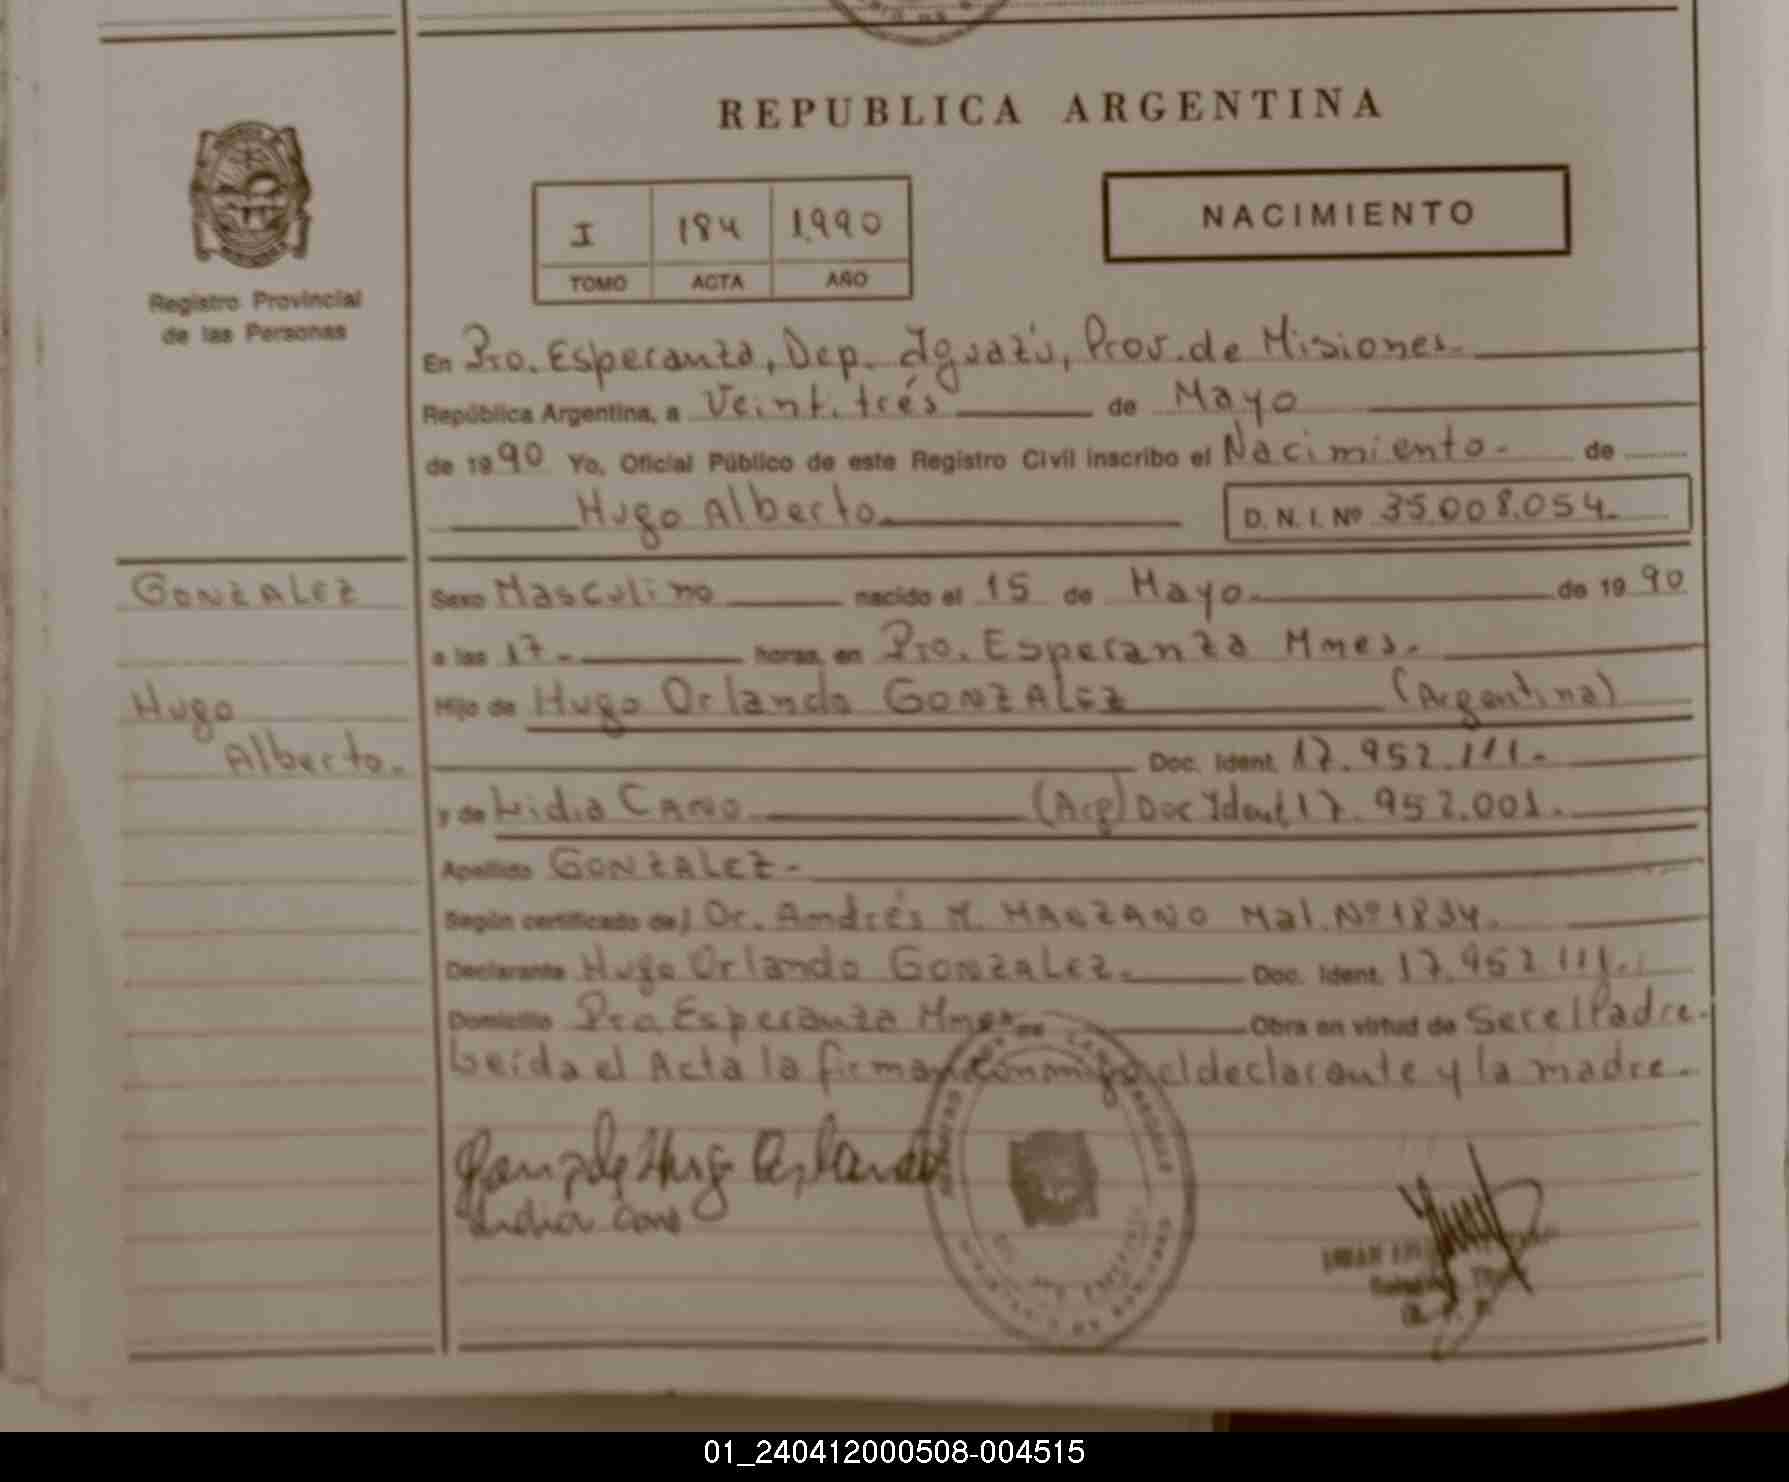 REPUBLICA ARGENTINA
I 184 1990
TOMO ACTA AÑO
NACIMIENTO
Registro Provincial
de las Personas
En Pto. Esperanza, Dep. Iguazú, Prov. de Misiones
República Argentina, a Veintitrés de Mayo
de 1990 Yo, Oficial Público de este Registro Civil inscribo el Nacimiento. de
Hugo Alberto D. N. I. Nº 35.008.054.
GONZALEZ
Hugo
Alberto.
Sexo Masculino nacido el 15 de Mayo. de 1990
a las 17. horas, en Pto. Esperanza Mnes.
Hijo de Hugo Orlando GONZALEZ (Argentina)
Doc. Ident. 17.952.111.
y de Lidia CANO (Arg) Doc Ident 17.952.001.
Apellido GONZALEZ.
Según certificado de Dr. Andrés M. MANZANO Mat. Nº 1834.
Declarante Hugo Orlando GONZALEZ. Doc. Ident. 17.952.111.
Domicilio Pto. Esperanza Mnes Obra en virtud de Ser el Padre.
Leída el Acta la firman conmigo el declarante y la madre.
Gonzalez Hugo Orlando
Lidia Cano
01_240412000508-004515